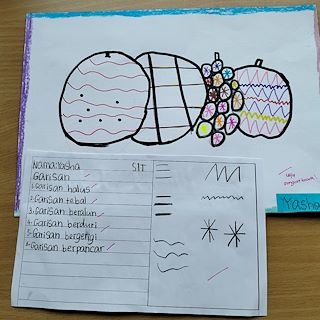 Nama:Yasha S1T
Garisan
1.Garisan halus
2.Garisan tebal
3.Garisan beralun
4.Garisan berduri
5.Garisan bergerigi
6.Garisan berpancar
Yasha